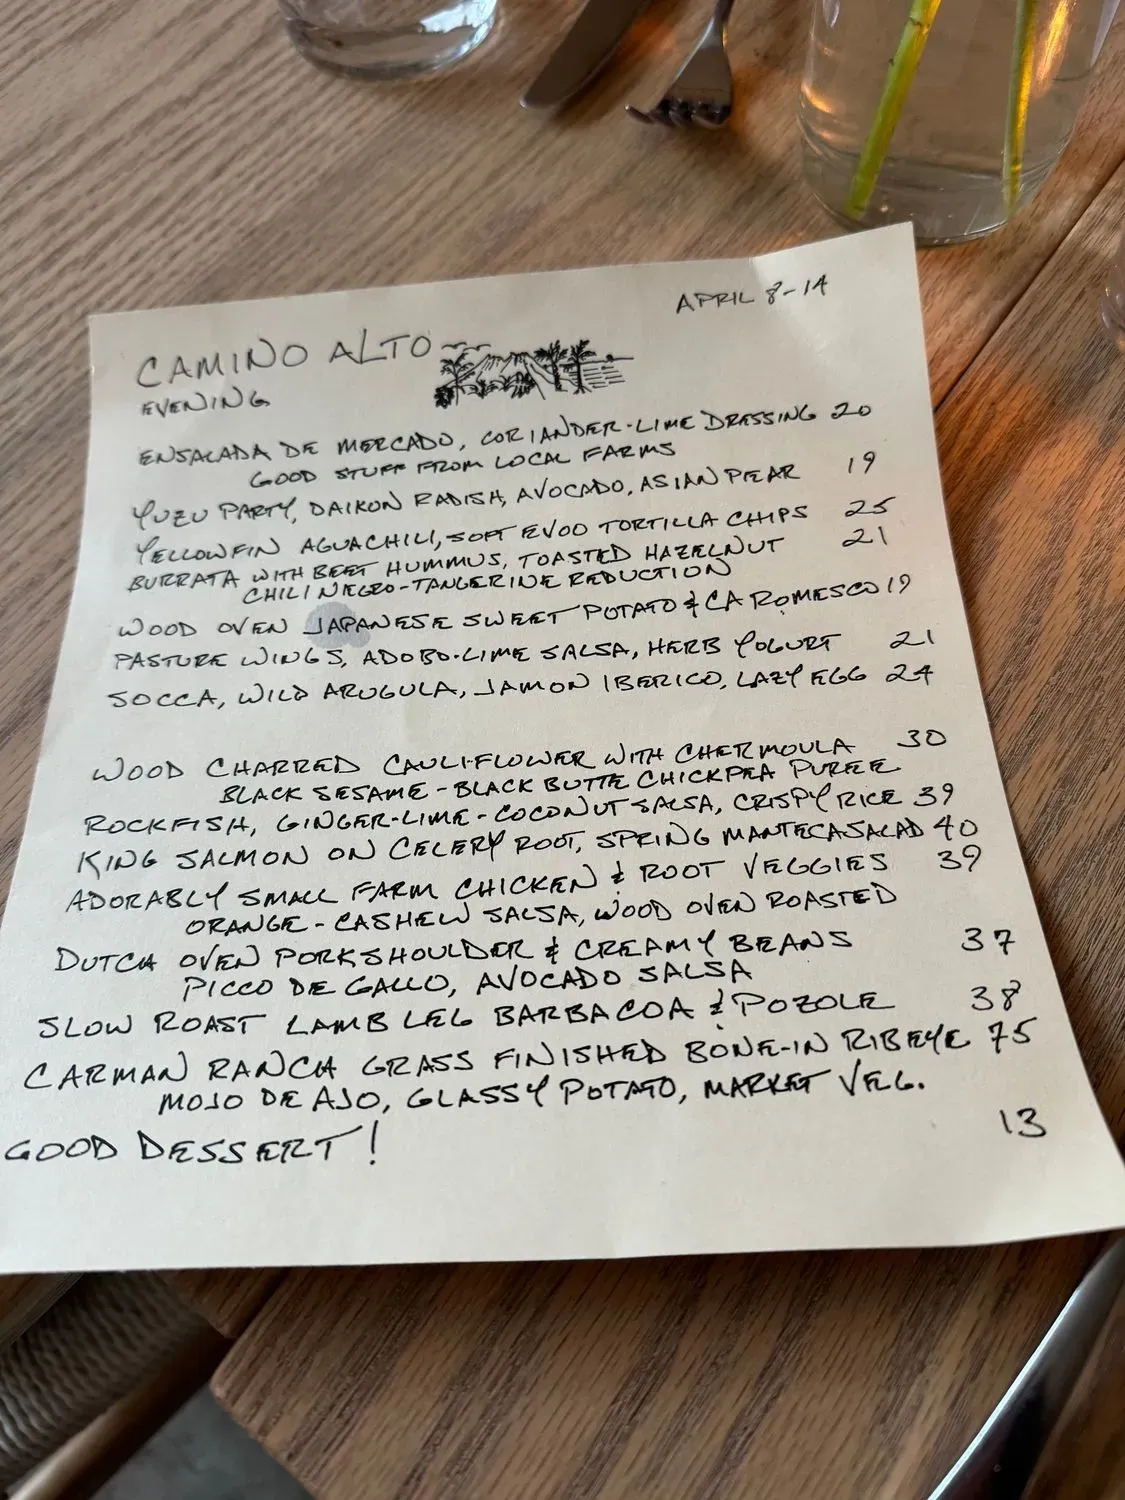 APRIL 8-14
CAMINO ALTO
EVENING
ENSALADA DE MERCADO, CORIANDER-LIME DRESSING 20
GOOD STUFF FROM LOCAL FARMS
YUZU PARTY, DAIKON RADISH, AVOCADO, ASIAN PEAR 19
YELLOWFIN AGUACHILI, SOFT EVOO TORTILLA CHIPS 25
BURRATA WITH BEET HUMMUS, TOASTED HAZELNUT 21
CHILI NEGRO-TANGERINE REDUCTION
WOOD OVEN JAPANESE SWEET POTATO & CA ROMESCO 19
PASTURE WINGS, ADOBO-LIME SALSA, HERB YOGURT 21
SOCCA, WILD ARUGULA, JAMON IBERICO, LAZY EGG 24
WOOD CHARRED CAULIFLOWER WITH CHERMOULA 30
BLACK SESAME-BLACK BUTTE CHICKPEA PUREE
ROCKFISH, GINGER-LIME-COCONUT SALSA, CRISPY RICE 39
KING SALMON ON CELERY ROOT, SPRING MANTECA SALAD 40
ADORABLY SMALL FARM CHICKEN & ROOT VEGGIES 39
ORANGE-CASHEW SALSA, WOOD OVEN ROASTED
DUTCH OVEN PORK SHOULDER & CREAMY BEANS 37
PICCO DE GALLO, AVOCADO SALSA
SLOW ROAST LAMB LEG BARBACOA & POZOLE 38
CARMAN RANCH GRASS FINISHED BONE-IN RIBEYE 75
MOJO DE AJO, GLASSY POTATO, MARKET VEG.
GOOD DESSERT! 13